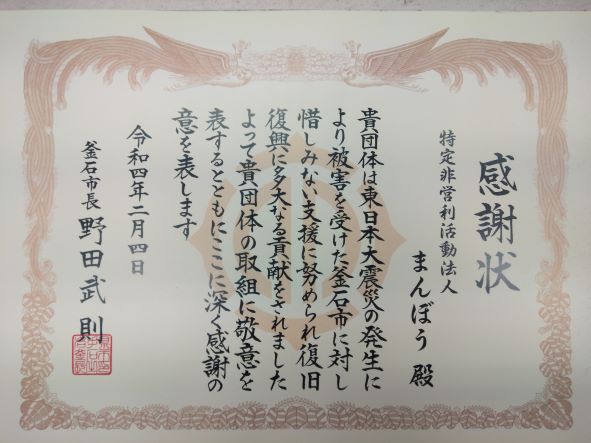 感謝状
特定非営利活動法人
まんぼう 殿
貴団体は東日本大震災の発生に
より被害を受けた釜石市に対し
惜しみない支援に努められ復旧
復興に多大なる貢献をされました
よって貴団体の取組に敬意を
表するとともにここに深く感謝の
意を表します
令和四年二月四日
釜石市長 野田武則